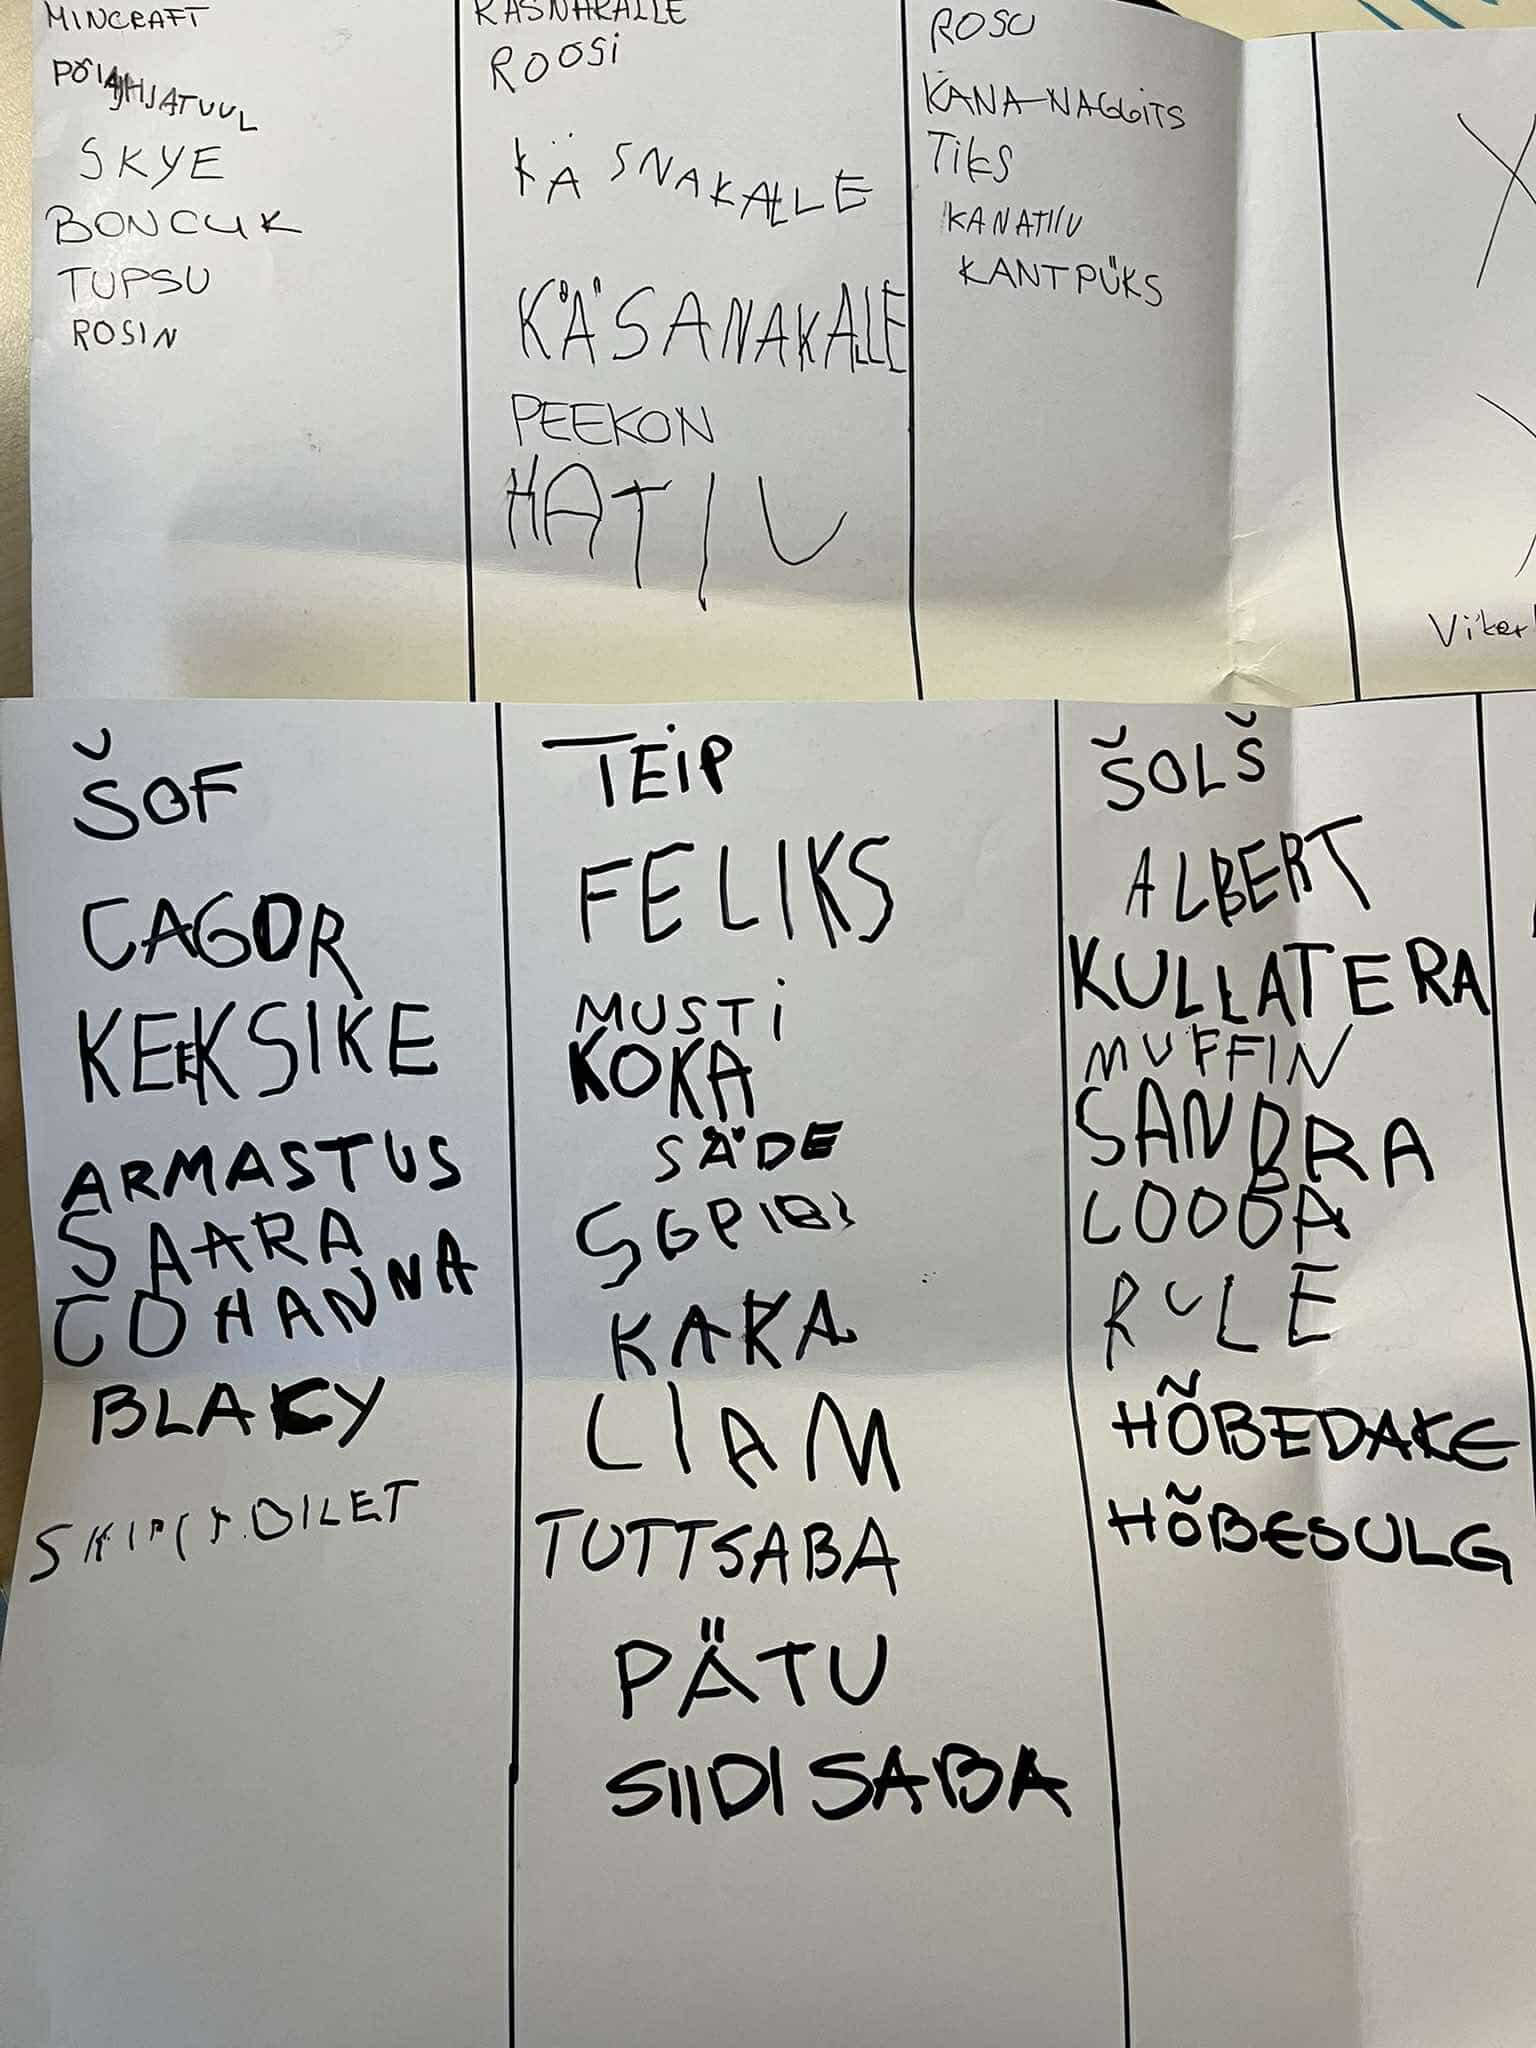 MINCRAFT
PÕHJATUUL
SKYE
BONCUK
TUPSU
ROSIN
KÄSNAKALLE
ROOSI
KÄSNAKALLE
KÄSANAKALLE
PEEKON
HATIU
ROSU
KANA-NAGGITS
TIKS
KANATIIU
KANTPÜKS
ŠOF
CAGOR
KEEKSIKE
ARMASTUS
SAARA
JOHANNA
BLACY
TEIP
FELIKS
MUSTI
KOKA
SÄDE
KAKA
LIAM
TUTTSABA
PÄTU
SIIDISABA
ŠOLŠ
ALBERT
KULLATERA
MUFFIN
SANDRA
LOODA
RULE
HÕBEDAKE
HÕBESULG